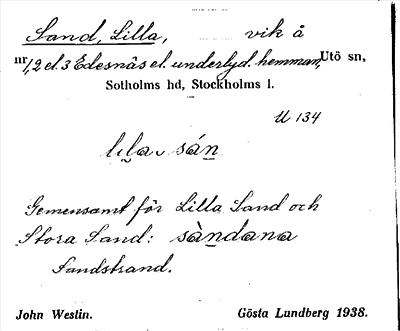 Sand, Lilla, vik å
nr 1, 2 el. 3 Edesnäs el. underlyd. hemman, Utö sn,
Sotholms hd, Stockholms l.
U 134
lıla sán
Gemensamt för Lilla Sand och
Stora Sand: sàndana
Sandstrand.
John Westin. Gösta Lundberg 1938.